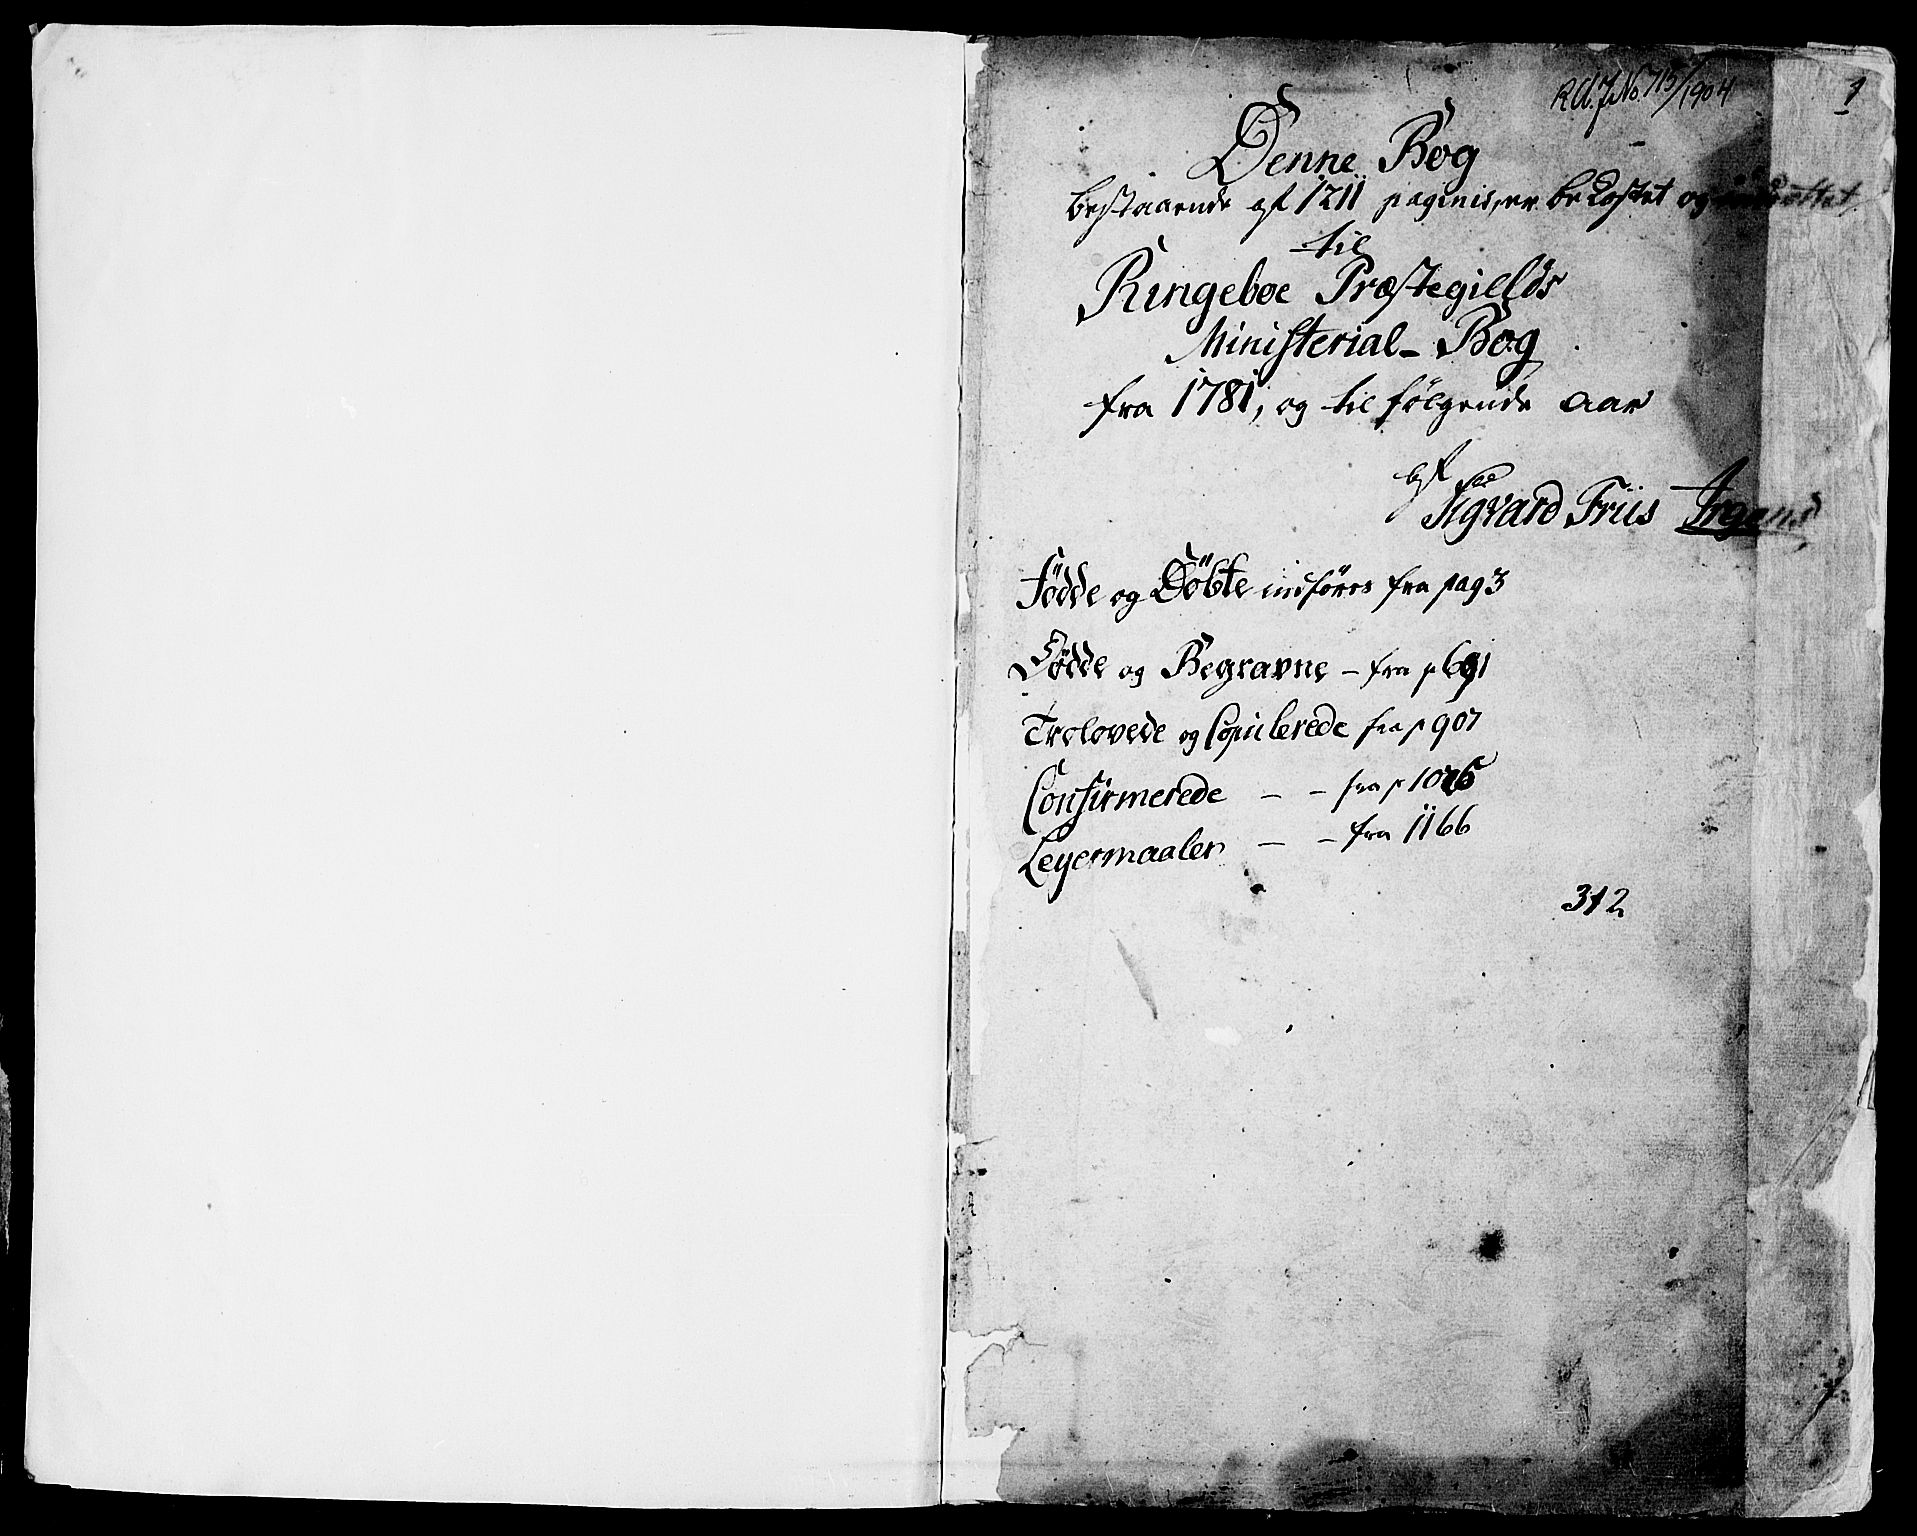 R.A. J No. 715/1904
1
Denne Bog
bestaaende af 1211 paginis, er bekostet og
til
Ringeboe Præstegields
Ministerial-Bog
fra 1781, og til følgende Aar
af
Sigvard Friis Irgens
Födde og Döbte indføres fra pag 3
Dödde og Begravne - fra p 691
Trolovede og Copulerede fra p 907
Confirmerede - - fra p
Leyermaaler - - fra 1166
312